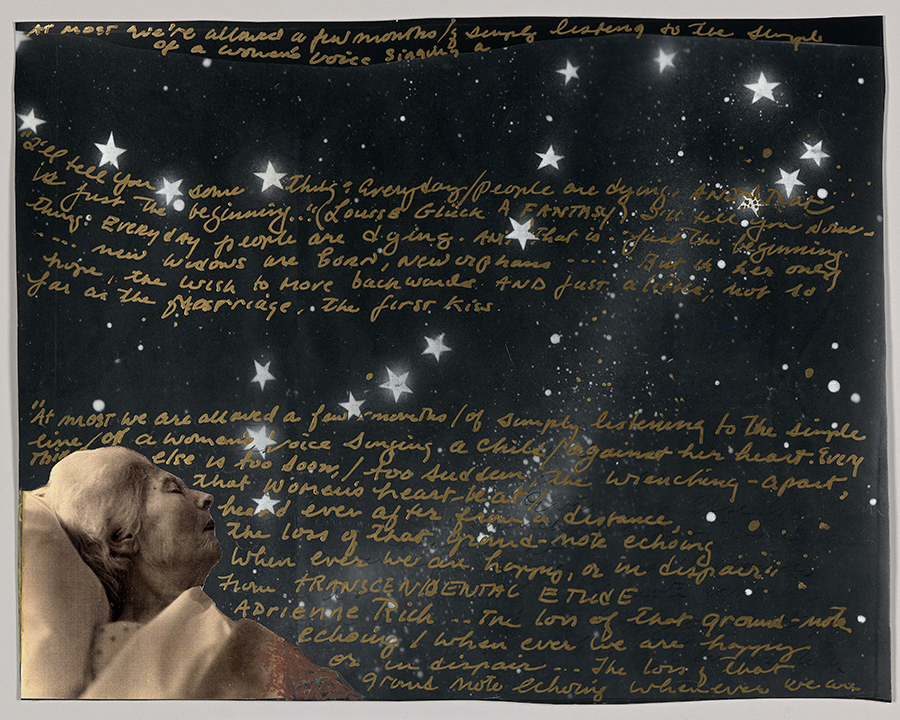 At most we're allowed a few months/of simply listening to the simple
of a woman's voice singing a
"I'll tell you some thing: every day/people are dying. AND THAT
is just the beginning..." (Louise Glück A FANTASY) I'll tell you some-
thing: EVERYDAY people are dying. AND that is just the beginning.
.... new widows are born, new orphans .... But in her only
hope, the wish to move backwards. AND just a little, not so
far as the Marriage, the first kiss.
"At most we are allowed a few months/of simply listening to the simple
line/of a woman's voice singing a child/against her heart. Every
thing else is too soon,/too sudden, the wrenching-apart,
that woman's heart-beat
heard ever after from a distance,
the loss of that ground-note echoing
when ever we are happy, or in despair"
From TRANSCENDENTAL ETUDE
ADRIENNE Rich ... the loss of that ground-note
echoing/when ever we are happy
or in despair ... The loss of that
ground note echoing whenever we are